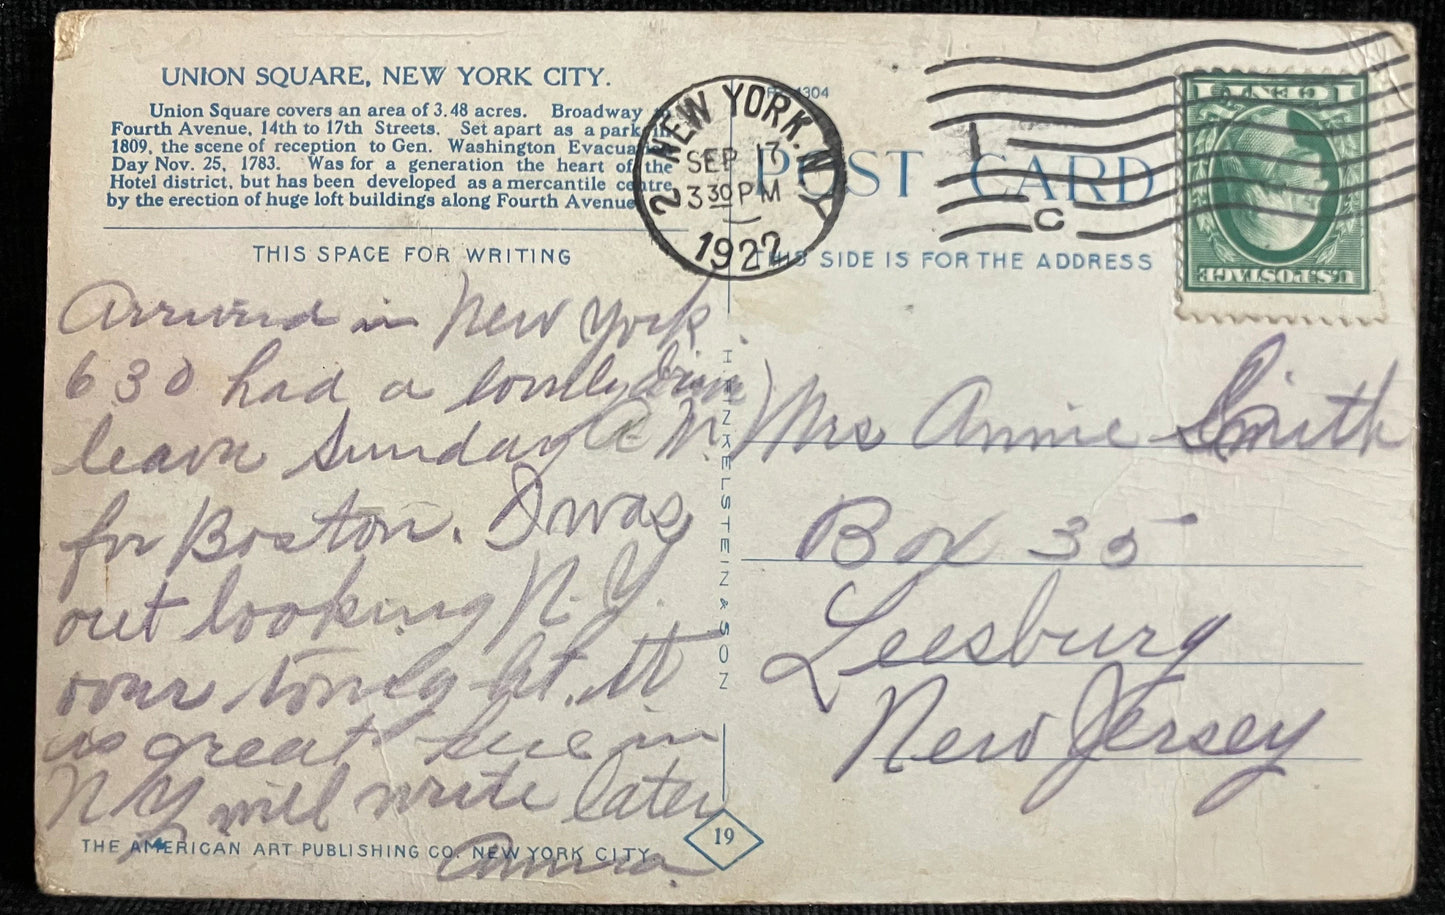 UNION SQUARE, NEW YORK CITY.
Union Square covers an area of 3.48 acres. Broadway to
Fourth Avenue, 14th to 17th Streets. Set apart as a park in
1809, the scene of reception to Gen. Washington Evacua
Day Nov. 25, 1783. Was for a generation the heart of the
Hotel district, but has been developed as a mercantile centre
by the erection of huge loft buildings along Fourth Avenue
THIS SPACE FOR WRITING
Arrived in New York
630 had a lovely drive
leave Sunday A.M.
for Boston. I was
out looking N.Y.
over tonight. It
is great here in
N Y will write later
THE AMERICAN ART PUBLISHING CO. NEW YORK CITY
H. FINKELSTEIN & SON
19
4304
NEW YORK, N.Y.
2
SEP 17
3 30 PM
1922
POST CARD
C
THIS SIDE IS FOR THE ADDRESS
1 CENT 1
U.S. POSTAGE
Mrs Annie Smith
Box 35
Leesburg
New Jersey